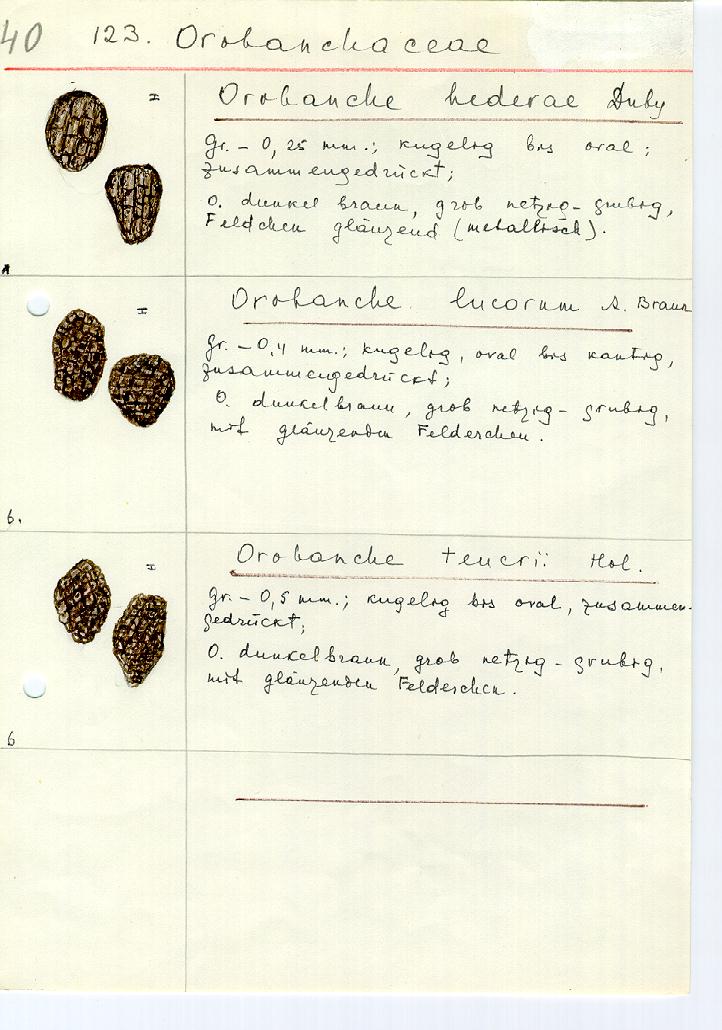 40 123. Orobanchaceae
Orobanche hederae Duby
Gr. – 0,25 mm.; kugelig bis oral;
zusammengedrückt;
O. dunkel braun, grob netzig-grubig,
Feldchen glänzend (metallisch).
Orobanche lucorum A. Braun
Gr. – 0,4 mm.; kugelig, oval bis kantig,
zusammengedrückt;
O. dunkelbraun, grob netzig-grubig,
mit glänzenden Felderchen.
6.
Orobanche teucrii Hol.
Gr. – 0,5 mm.; kugelig bis oval, zusammen-
gedrückt;
O. dunkelbraun, grob netzig-grubig,
mit glänzenden Felderchen.
6